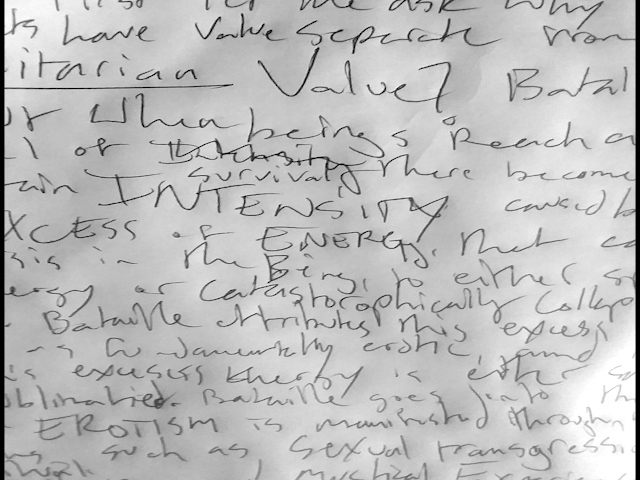 let me ask why
ts have value separate from
itarian Value? Batai
ur when beings Reach a
l of survival, there become
tain INTENSITY caused b
XCESS of ENERGY, that ca
sis in the Being, to either s
ergy or catastorophically collaps
Bataille attributes this excess
as fundamentally erotic, and
is excess energy is either so
ublimatied. Bataille goes into th
EROTISM is manifested through
ns such as sexual transgressio
Mystical Experience